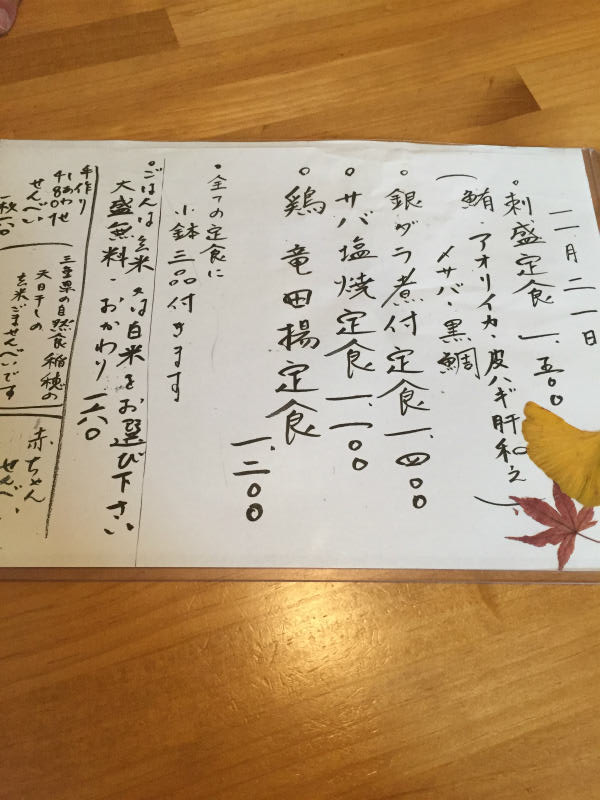 二月二一日
・刺盛定食 一、五〇〇
(鮪・アオリイカ・皮ハギ肝和え
〆サバ・黒鯛)
・銀ダラ煮付定食 一、四〇〇
・サバ塩焼定食 一、一〇〇
・鶏竜田揚定食
一、二〇〇
・全ての定食に
小鉢三品付きます
・ごはんは玄米又は白米をお選び下さい
大盛無料・おかわり一六〇
手作り
しあわせ
せんべい
三重県の自然食稲穂の
天日干しの
玄米ごませんべいです
赤ちゃん
せんべい